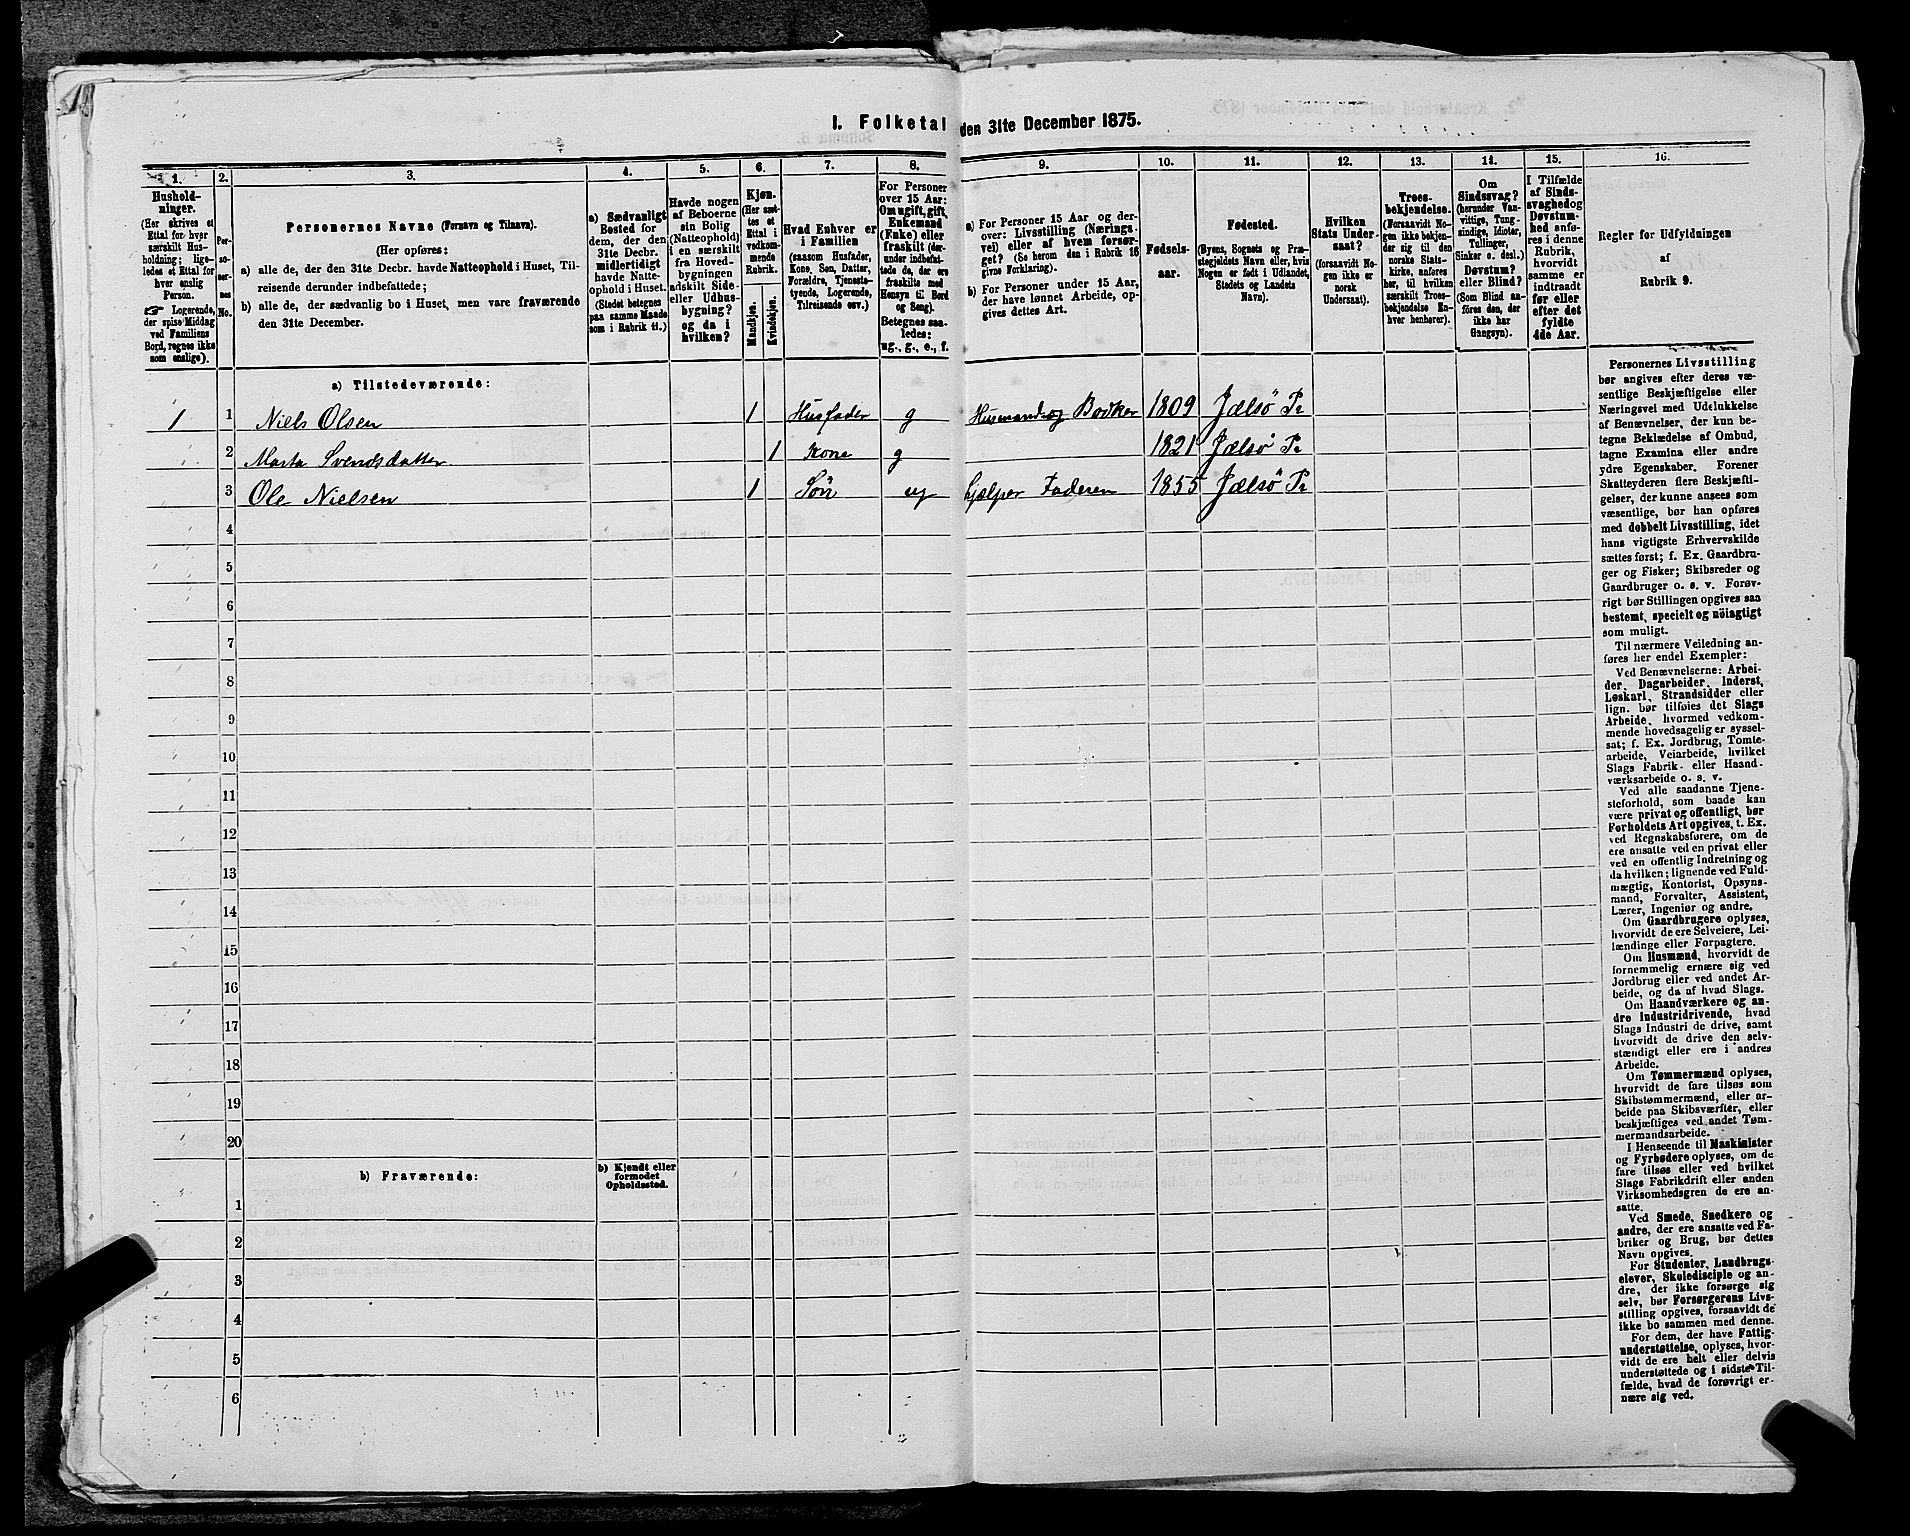 I. Folketal den 31te December 1875.
1.
2.
3.
4.
5.
6.
7.
8.
9.
10.
11.
12.
13.
14.
15.
16.
Hushold-
ninger.
(Her skrives et
Ettal for hver
særskilt Hus-
holdning; lige-
ledes et Ettal for
hver enslig
Person.
☞ Logerende,
der spise Middag
ved Familiens
Bord, regnes ikke
som enslige).
Per-
so-
ner-
nes
No.
Personernes Navne (Fornavn og Tilnavn).
(Her opføres:
a) alle de, der den 31te Decbr. havde Natteophold i Huset, Til-
reisende derunder indbefattede;
b) alle de, der sædvanlig bo i Huset, men vare fraværende
den 31te December.
a) Sædvanligt
Bosted for
dem, der den
31te Decbr.
midlertidigt
havde Natte-
ophold i Huset.
(Stedet betegnes
paa samme Maade
som i Rubrik 11.)
Havde nogen
af Beboerne
sin Bolig
(Natteophold)
i en særskilt
fra Hoved-
bygningen
adskilt Side-
eller Udhus-
bygning?
og da i
hvilken?
Kjøn.
(Her sæt-
tes et
Ettal i
vedkom-
mende
Rubrik.
Mandkjøn.
Kvindekjøn.
Hvad Enhver er
i Familien
(saasom Husfader,
Kone, Søn, Datter,
Forældre, Tjeneste-
tyende, Logerende,
Tilreisende osv.)
For Personer
over 15 Aar:
Om ugift, gift,
Enkemand
(Enke) eller
fraskilt (der-
under indbefat-
tede de, der ere
fraskilte med
Hensyn til Bord
og Seng).
Betegnes saa-
ledes:
ug., g., e., f.
a) For Personer 15 Aar og der-
over: Livsstilling (Nærings-
vei) eller af hvem forsør-
get? (Se herom den i Rubrik 16
givne Forklaring).
b) For Personer under 15 Aar,
der have lønnet Arbeide, op-
gives dettes Art.
Fødsels-
aar.
Fødested.
(Byens, Sognets og Præ-
stegjeldets Navn eller, hvis
Nogen er født i Udlandet,
Stedets og Landets
Navn).
Hvilken
Stats Under-
saat?
(forsaavidt No-
gen ikke er
norsk
Undersaat).
Troes-
bekjendelse.
(Forsaavidt No-
gen ikke bekjen-
der sig til den
norske Stats-
kirke, anføres
her, til hvilken
særskilt Troes-
bekjendelse En-
hver henhører).
Om
Sindssvag?
(herunder Van-
vittige, Tung-
sindige, Idioter,
Tullinger,
Sinker o. desl.)
Døvstum?
eller Blind?
(Som Blind an-
føres den, der
ikke har
Gangsyn).
I Tilfælde
af Sinds-
svaghed og
Døvstum-
hed anfø-
res i denne
Rubrik,
hvorvidt
samme er
indtraadt
før eller
efter det
fyldte
4de Aar.
Regler for Udfyldningen
af
Rubrik 9.
a) Tilstedeværende:
1 1 Niels Olsen 1 Husfader g Husmand og Bødker 1809 Jælsø Pr
2 Marta Svendsdatter 1 Kone g 1821 Jælsø Pr
3 Ole Nielsen 1 Søn ug hjælper Faderen 1855 Jælsø Pr
4
5
6
7
8
9
10
11
12
13
14
15
16
17
18
19
20
b) Fraværende:
b) Kjendt eller
formodet
Opholdssted.
1
2
3
4
5
6
Personernes Livsstilling
bør angives efter deres væ-
sentlige Beskjæftigelse eller
Næringsvei med Udelukkelse
af Benævnelser, der kun be-
tegne Beklædelse af Ombud,
tagne Examina eller andre
ydre Egenskaber. Forener
Skatteyderen flere Beskjæfti-
gelser, der kunne ansees som
væsentlige, bør han opføres
med dobbelt Livsstilling, idet
hans vigtigste Erhvervskilde
sættes først; f. Ex. Gaardbru-
ger og Fisker; Skibsreder og
Gaardbruger o. s. v. Forøv-
rigt bør Stillingen opgives saa
bestemt, specielt og nöiagtigt
som muligt.
Til nærmere Veiledning an-
føres her endel Exempler:
Ved Benævnelserne: Arbei-
der, Dagarbeider, Inderst,
Løskarl, Strandsidder eller
lign. bør tilføies det Slags
Arbeide, hvormed vedkom-
mende hovedsagelig er syssel-
sat; f. Ex. Jordbrug, Tomte-
arbeide, Veiarbeide, hvilket
Slags Fabrik- eller Haand-
værksarbeide o. s. v.
Ved alle saadanne Tjene-
steforhold, som baade kan
være privat og offentligt, bør
Forholdets Art opgives, t. Ex.
ved Regnskabsførere, om de
ere ansatte ved en privat eller
ved en offentlig Indretning og
da hvilken; lignende ved Fuld-
mægtig, Kontorist, Opsyns-
mand, Forvalter, Assistent,
Lærer, Ingeniør og andre.
Om Gaardbrugere oplyses,
hvorvidt de ere Selveiere, Lei-
lændinge eller Forpagtere.
Om Husmænd, hvorvidt de
fornemmelig ernære sig ved
Jordbrug eller ved andet Ar-
beide, og da af hvad Slags.
Om Haandværkere og an-
dre Industridrivende, hvad
Slags Industri de drive, samt
hvorvidt de drive den selv-
stændigt eller ere i andres
Arbeide.
Om Tømmermænd oplyses,
hvorvidt de fare tilsøs som
Skibstømmermænd, eller ar-
beide paa Skibsværfter, eller
beskjæftiges ved andet Tøm-
mermandsarbeide.
I Henseende til Maskinister
og Fyrbødere oplyses, om de
fare tilsøs eller ved hvilket
Slags Fabrikdrift eller anden
Virksomhedsgren de ere an-
satte.
Ved Smede, Snedkere og
andre, der ere ansatte ved Fa-
briker og Brug, bør dettes
Navn opgives.
For Studenter, Landbrugs-
elever, Skoledisciple og an-
dre, der ikke forsørge sig
selv, bør Forsørgerens Livs-
stilling opgives, forsaavidt de
ikke bo sammen med denne.
For dem, der have Fattig-
understøttelse, oplyses, hvor-
vidt de ere helt eller delvis
understøttede og i sidste Til-
fælde, hvad de forøvrigt er-
nære sig ved.